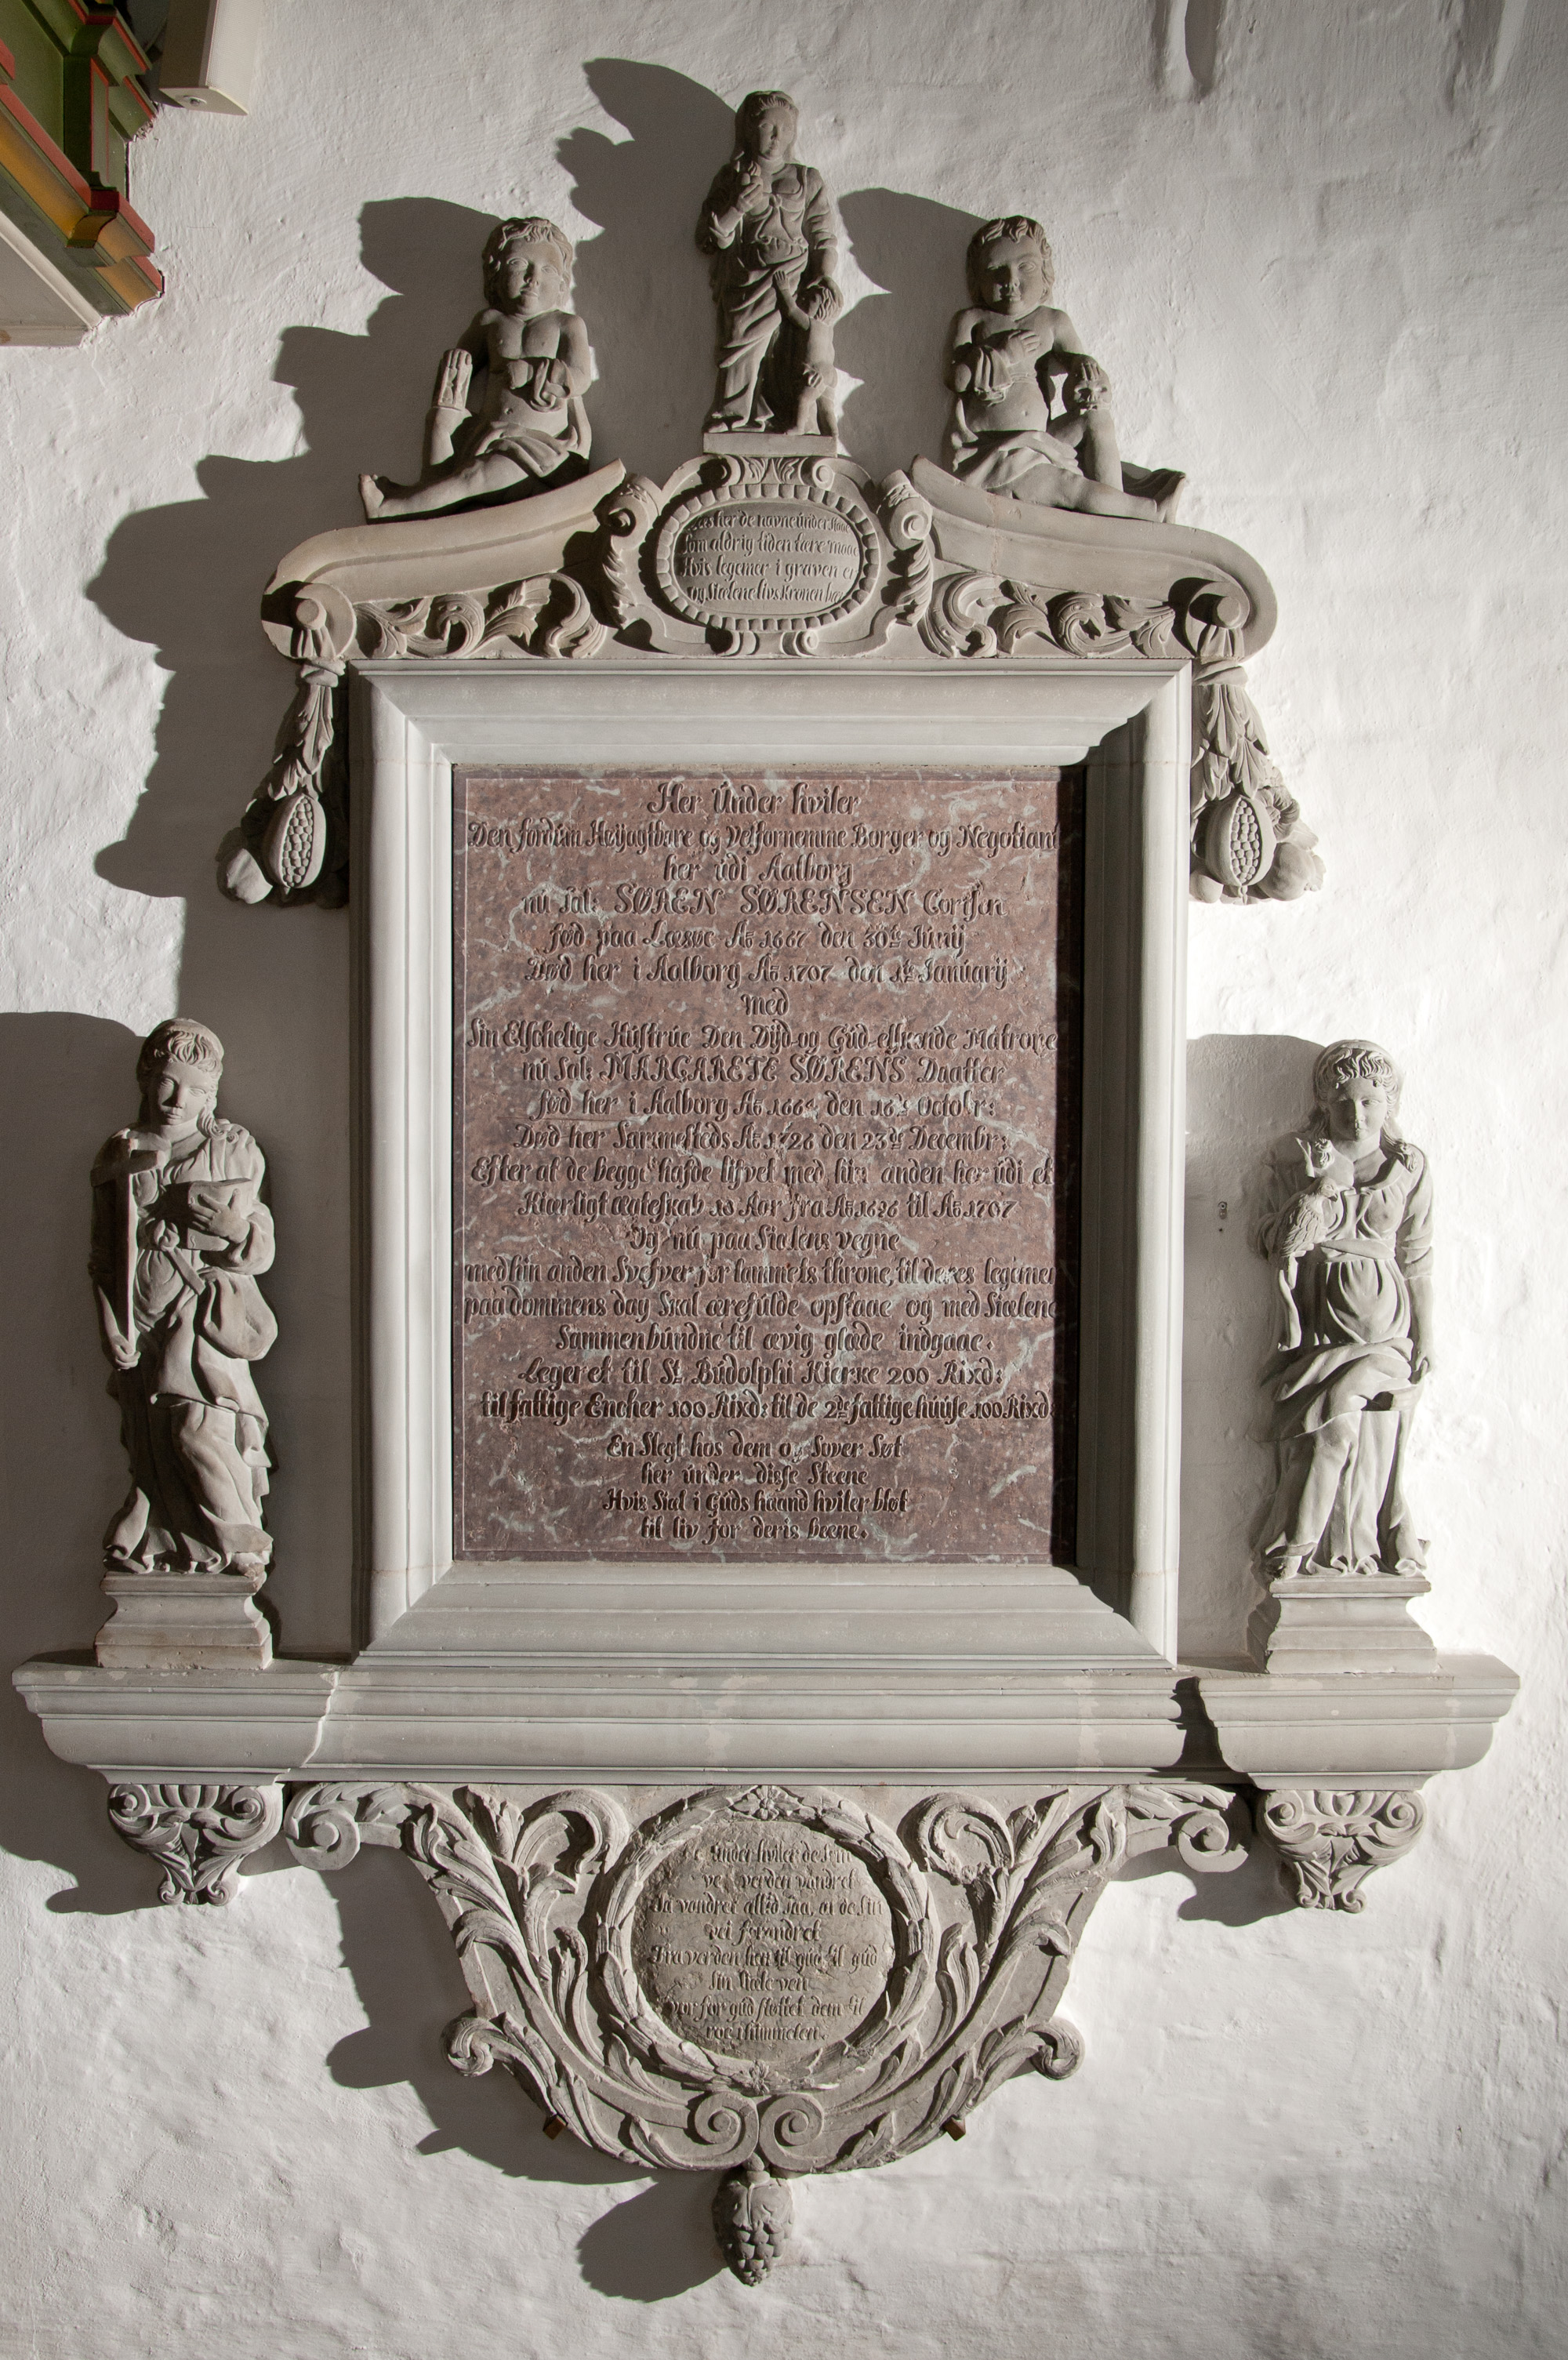 her de navne únder staae
som aldrig tiden tære maae
Hvis legemer i graven er
og Siælene livs Kronen bær
Her Únder hviler
Den fordúm Høijagtbare og Velfornemme Borger og Negotiant
her údi Aalborg
nú Sal: SØREN SØRENSEN Cortsen
fød paa Læsøe A͞o 1667 den 30te Júnij
Død her i Aalborg A͞o 1707 den 1te Janúarij
med
Sin Elschelige Hústrúe Den Dÿd og Gúd elskende Matrone
nú Sal: MARGARETE SØRENS Daatter
fød her i Aalborg A͞o 1664 den 16de Octobr:
Død her Sammesteds A͞o 1726 den 23de Decembr:
Efter at de begge hafde lifvet med hin anden her údi et
Kiærligt ægteskab 10 Aar fra A͞o 1696 til A͞o 1707
Og nú paa Siælens vegne
med hin anden Svefver for lammets throne, til deres legemer
paa dommens dag Skal ærefúlde opstaae og med Siælene
Sammenbúndne til ævig glæde indgaae.
Legeret til St Búdolphi Kierke 200 Rixd:
til fattige Encher 100 Rixd: til de 2de fattige húúse 100 Rixd:
En Slegt hos dem og Sover Søt
her únder disse Steene
Hvis Siæl i Gúds haand hviler bløt
til liv for deris beene.
Únder hviler de som
verden vandret
Saa vandret altid saa, at de sin
vei forandret
Fra verden hen til gúd til gúd
sin Siæle ven
vor for gúd fløttet dem til
roe i himmelen.